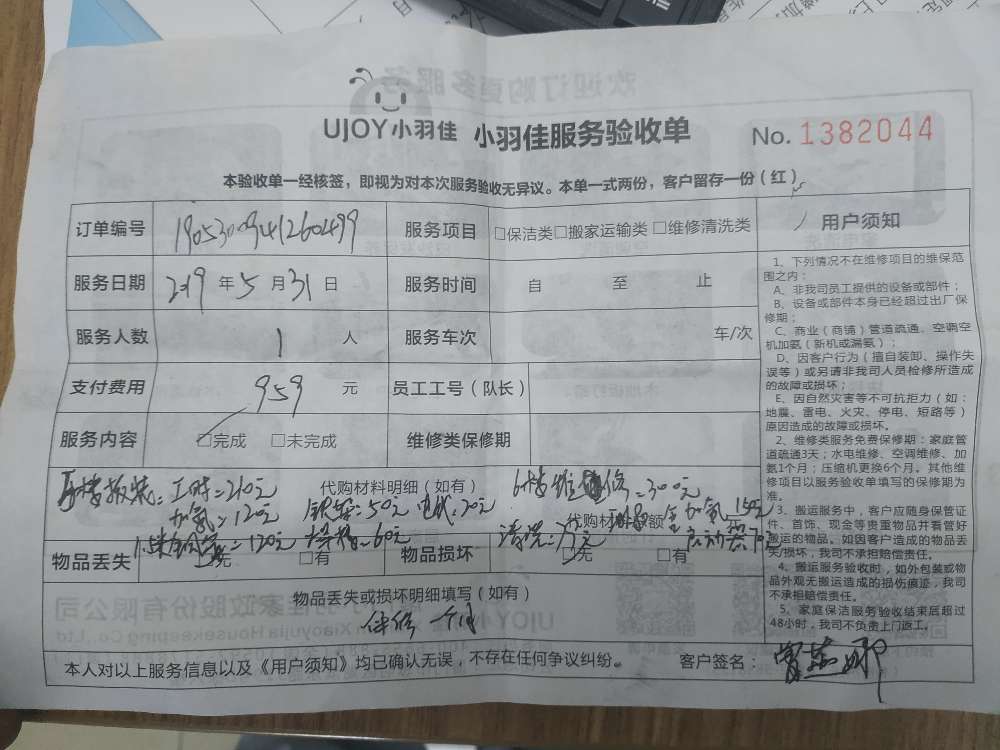 UJOY小羽佳 小羽佳服务验收单 No. 1382044
本验收单一经核签，即视为对本次服务验收无异议。本单一式两份，客户留存一份（红）
订单编号 1905300941260499 服务项目 □保洁类□搬家运输类□维修清洗类
服务日期 2019 年 5 月 31 日 服务时间 自 至 止
服务人数 1 人 服务车次 车/次
支付费用 959 元 员工工号（队长）
服务内容 □完成 □未完成 维修类保修期
工时=210元 代购材料明细（如有） 6楼 修=300元
加氟=120元 50元 电线=20元 代购材料 额 加氟 150元
=120元 60元 清洗= 元 启动器70元
物品丢失 □无 □有 物品损坏 □无 □有
物品丢失或损坏明细填写（如有）
保修一个月
本人对以上服务信息以及《用户须知》均已确认无误，不存在任何争议纠纷。 客户签名：
用户须知
1、下列情况不在维修项目的维保范
围之内：
A、非我司员工提供的设备或部件；
B、设备或部件本身已经超过出厂保
修期；
C、商业（商铺）管道疏通、空调空
机加氨（新机或漏氨）；
D、因客户行为（擅自装卸、操作失
误等）或另请非我司人员检修所造成
的故障或损坏；
E、因自然灾害等不可抗拒力（如：
地震、雷电、火灾、停电、短路等）
原因造成的故障或损坏。
2、维修类服务免费保修期：家庭管
道疏通3天；水电维修、空调维修、加
氨1个月；压缩机更换6个月。其他维
修项目以服务验收单填写的保修期为
准。
3、搬运服务中，客户应随身保管证
件、首饰、现金等贵重物品并看管好
搬运的物品。如因客户造成的物品丢
失/损坏，我司不承担赔偿责任。
4、搬运服务验收时，如外包装或物
品外观无搬运造成的损伤痕迹，我司
不承担赔偿责任。
5、家庭保洁服务验收结束后超过
48小时，我司不负责上门返工。